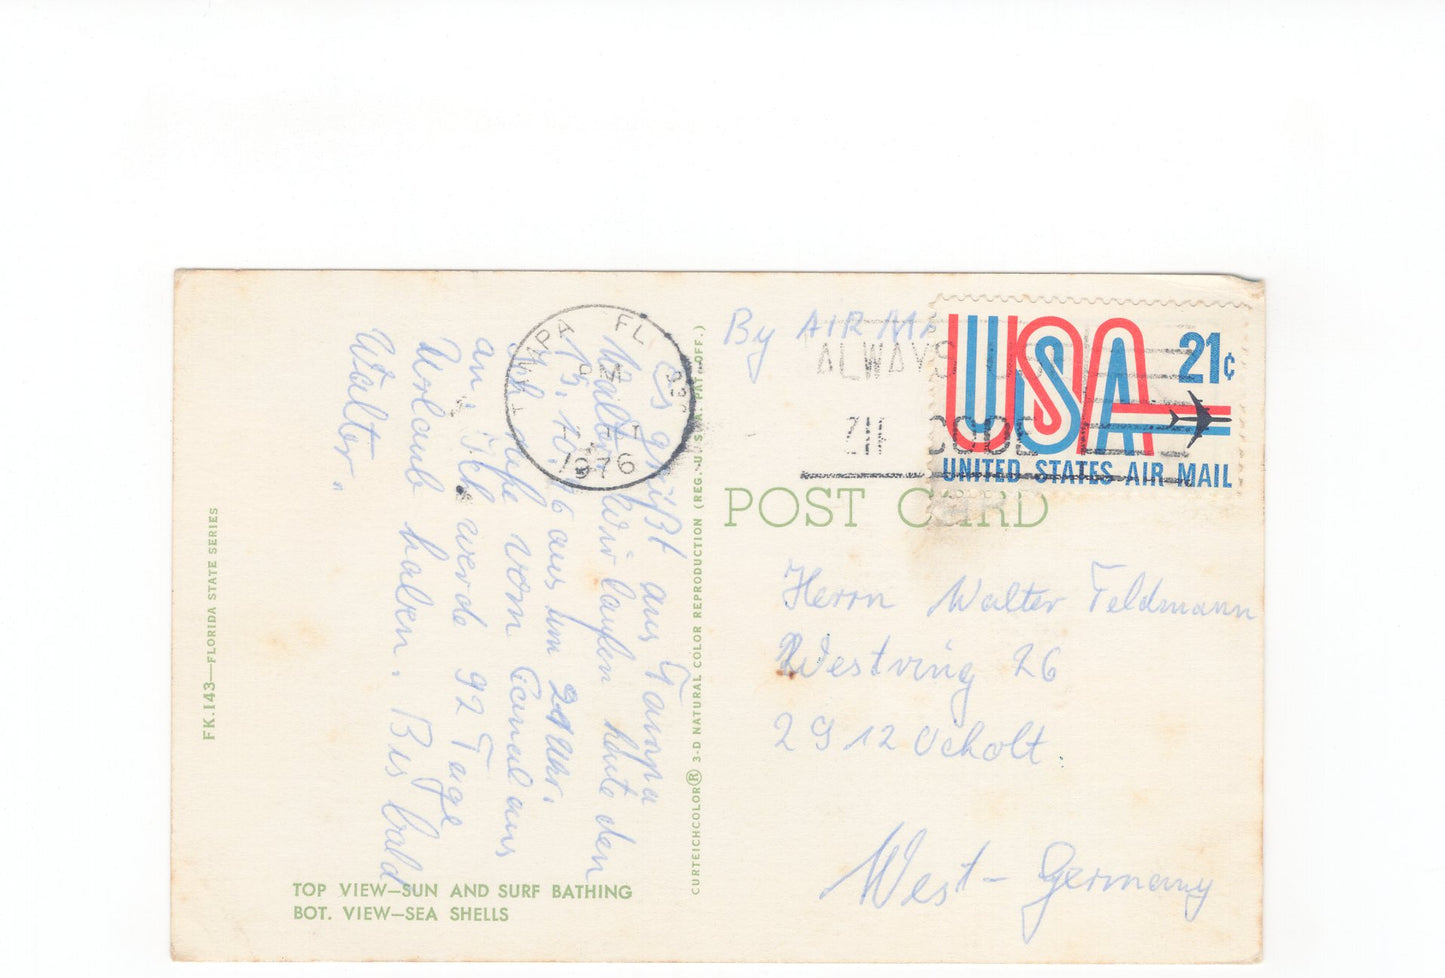 TAMPA FL 336
PM
1976
ALWAYS U
ZIP CODE
USA 21¢
UNITED STATES AIR MAIL
By AIR MA
POST CARD
Herrn Walter Feldmann
Westring 26
2912 Ocholt.
West-Germany
Es grüßt aus Tampa
Walter. Wir laufen heute den
13.10. 76 aus um 21 Uhr.
Ich rufe vom Canal aus
an. Ich werde 92 Tage
Urlaub haben. Bis bald
Walter
CURTEICHCOLOR® 3-D NATURAL COLOR REPRODUCTION (REG. U.S.A. PAT. OFF.)
FK.143—FLORIDA STATE SERIES
TOP VIEW—SUN AND SURF BATHING
BOT. VIEW—SEA SHELLS